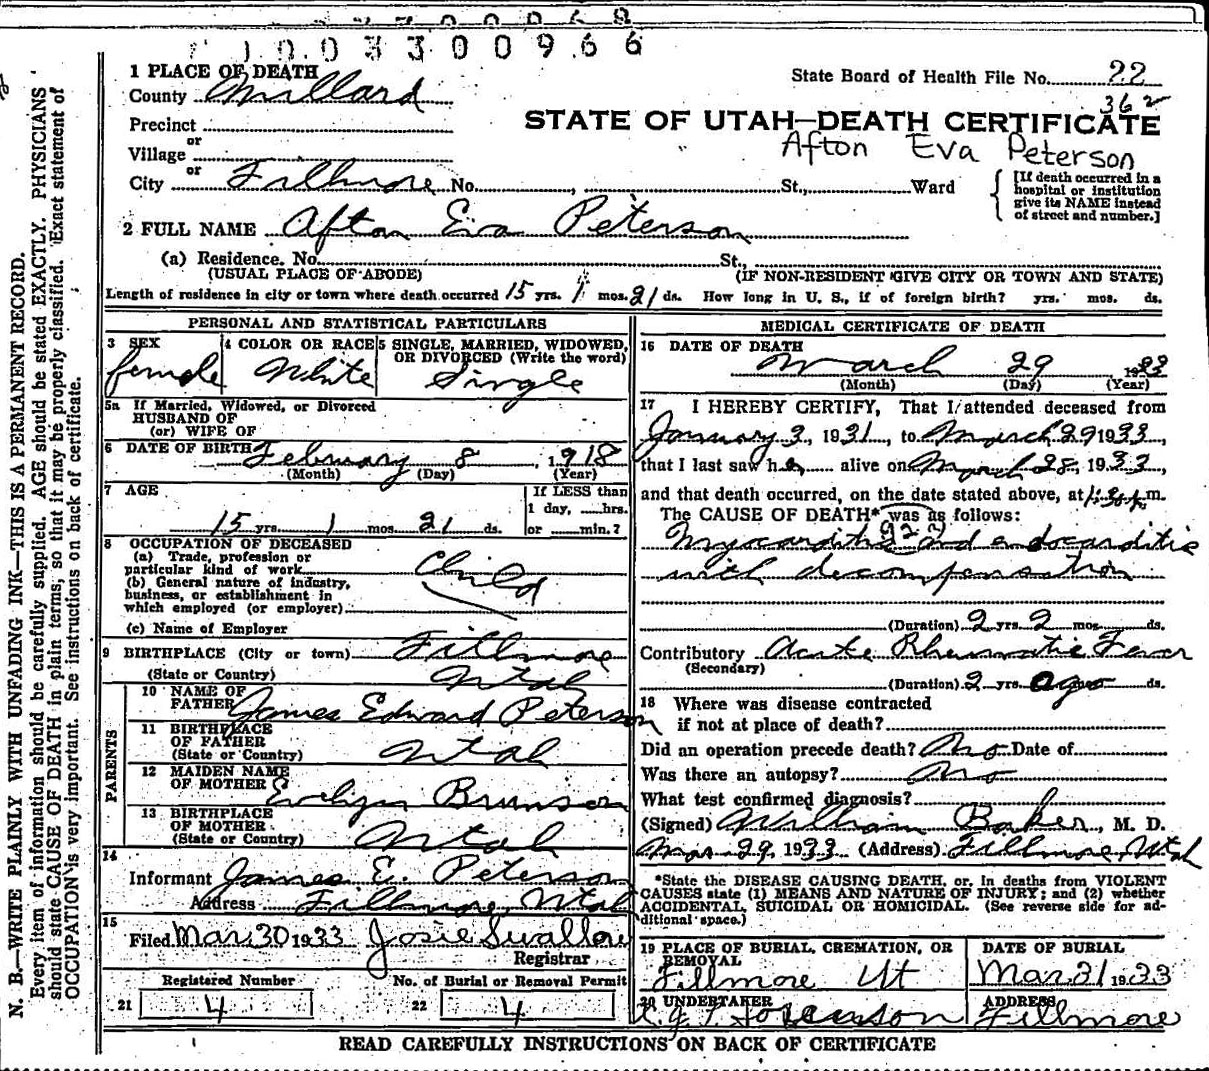 10033 00966
1 PLACE OF DEATH
County Millard
Precinct
or
Village
or
City Fillmore No. , St., Ward
State Board of Health File No. 22
362
STATE OF UTAH—DEATH CERTIFICATE
Afton Eva Peterson
[If death occurred in a
hospital or institution
give its NAME instead
of street and number.]
2 FULL NAME Afton Eva Peterson
(a) Residence. No. St.,
(USUAL PLACE OF ABODE) (IF NON-RESIDENT GIVE CITY OR TOWN AND STATE)
Length of residence in city or town where death occurred 15 yrs. 1 mos. 21 ds. How long in U. S., if of foreign birth? yrs. mos. ds.
PERSONAL AND STATISTICAL PARTICULARS
3 SEX
female
4 COLOR OR RACE
White
5 SINGLE, MARRIED, WIDOWED,
OR DIVORCED (Write the word)
Single
5a If Married, Widowed, or Divorced
HUSBAND OF
(or) WIFE OF
6 DATE OF BIRTH February 8, 1918
(Month) (Day) (Year)
7 AGE
15 yrs. 1 mos. 21 ds.
If LESS than
1 day, hrs.
or min.?
8 OCCUPATION OF DECEASED
(a) Trade, profession or
particular kind of work
Child
(b) General nature of industry,
business, or establishment in
which employed (or employer)
(c) Name of Employer
9 BIRTHPLACE (City or town) Fillmore
(State or Country) Utah
PARENTS
10 NAME OF
FATHER James Edward Peterson
11 BIRTHPLACE
OF FATHER
(State or Country) Utah
12 MAIDEN NAME
OF MOTHER Evelyn Brunson
13 BIRTHPLACE
OF MOTHER
(State or Country) Utah
14
Informant James E. Peterson
Address Fillmore, Utah
15
Filed Mar 30 1933 Josie Swallow
Registrar
Registered Number
21 4
No. of Burial or Removal Permit
22 4
MEDICAL CERTIFICATE OF DEATH
16 DATE OF DEATH
March 29 1933
(Month) (Day) (Year)
17 I HEREBY CERTIFY, That I attended deceased from
January 3, 1931, to March 29 1933,
that I last saw her alive on March 28, 1933,
and that death occurred, on the date stated above, at m.
The CAUSE OF DEATH* was as follows:
Myocarditis and endocarditis
with decompensation
(Duration) 2 yrs. 2 mos. ds.
Contributory Acute Rheumatic Fever
(Secondary)
(Duration) 2 yrs. ago ds.
18 Where was disease contracted
if not at place of death?
Did an operation precede death? No Date of
Was there an autopsy? No
What test confirmed diagnosis?
(Signed) William Baker, M. D.
Mar. 29, 1933 (Address) Fillmore, Utah
*State the DISEASE CAUSING DEATH, or, in deaths from VIOLENT
CAUSES state (1) MEANS AND NATURE OF INJURY; and (2) whether
ACCIDENTAL, SUICIDAL OR HOMICIDAL. (See reverse side for ad-
ditional space.)
19 PLACE OF BURIAL, CREMATION, OR
REMOVAL
Fillmore Ut
DATE OF BURIAL
Mar 31 1933
20 UNDERTAKER
ADDRESS
Fillmore
READ CAREFULLY INSTRUCTIONS ON BACK OF CERTIFICATE
N. B.—WRITE PLAINLY WITH UNFADING INK—THIS IS A PERMANENT RECORD.
Every item of information should be carefully supplied. AGE should be stated EXACTLY. PHYSICIANS
should state CAUSE OF DEATH in plain terms, so that it may be properly classified. Exact statement of
OCCUPATION is very important. See instructions on back of certificate.